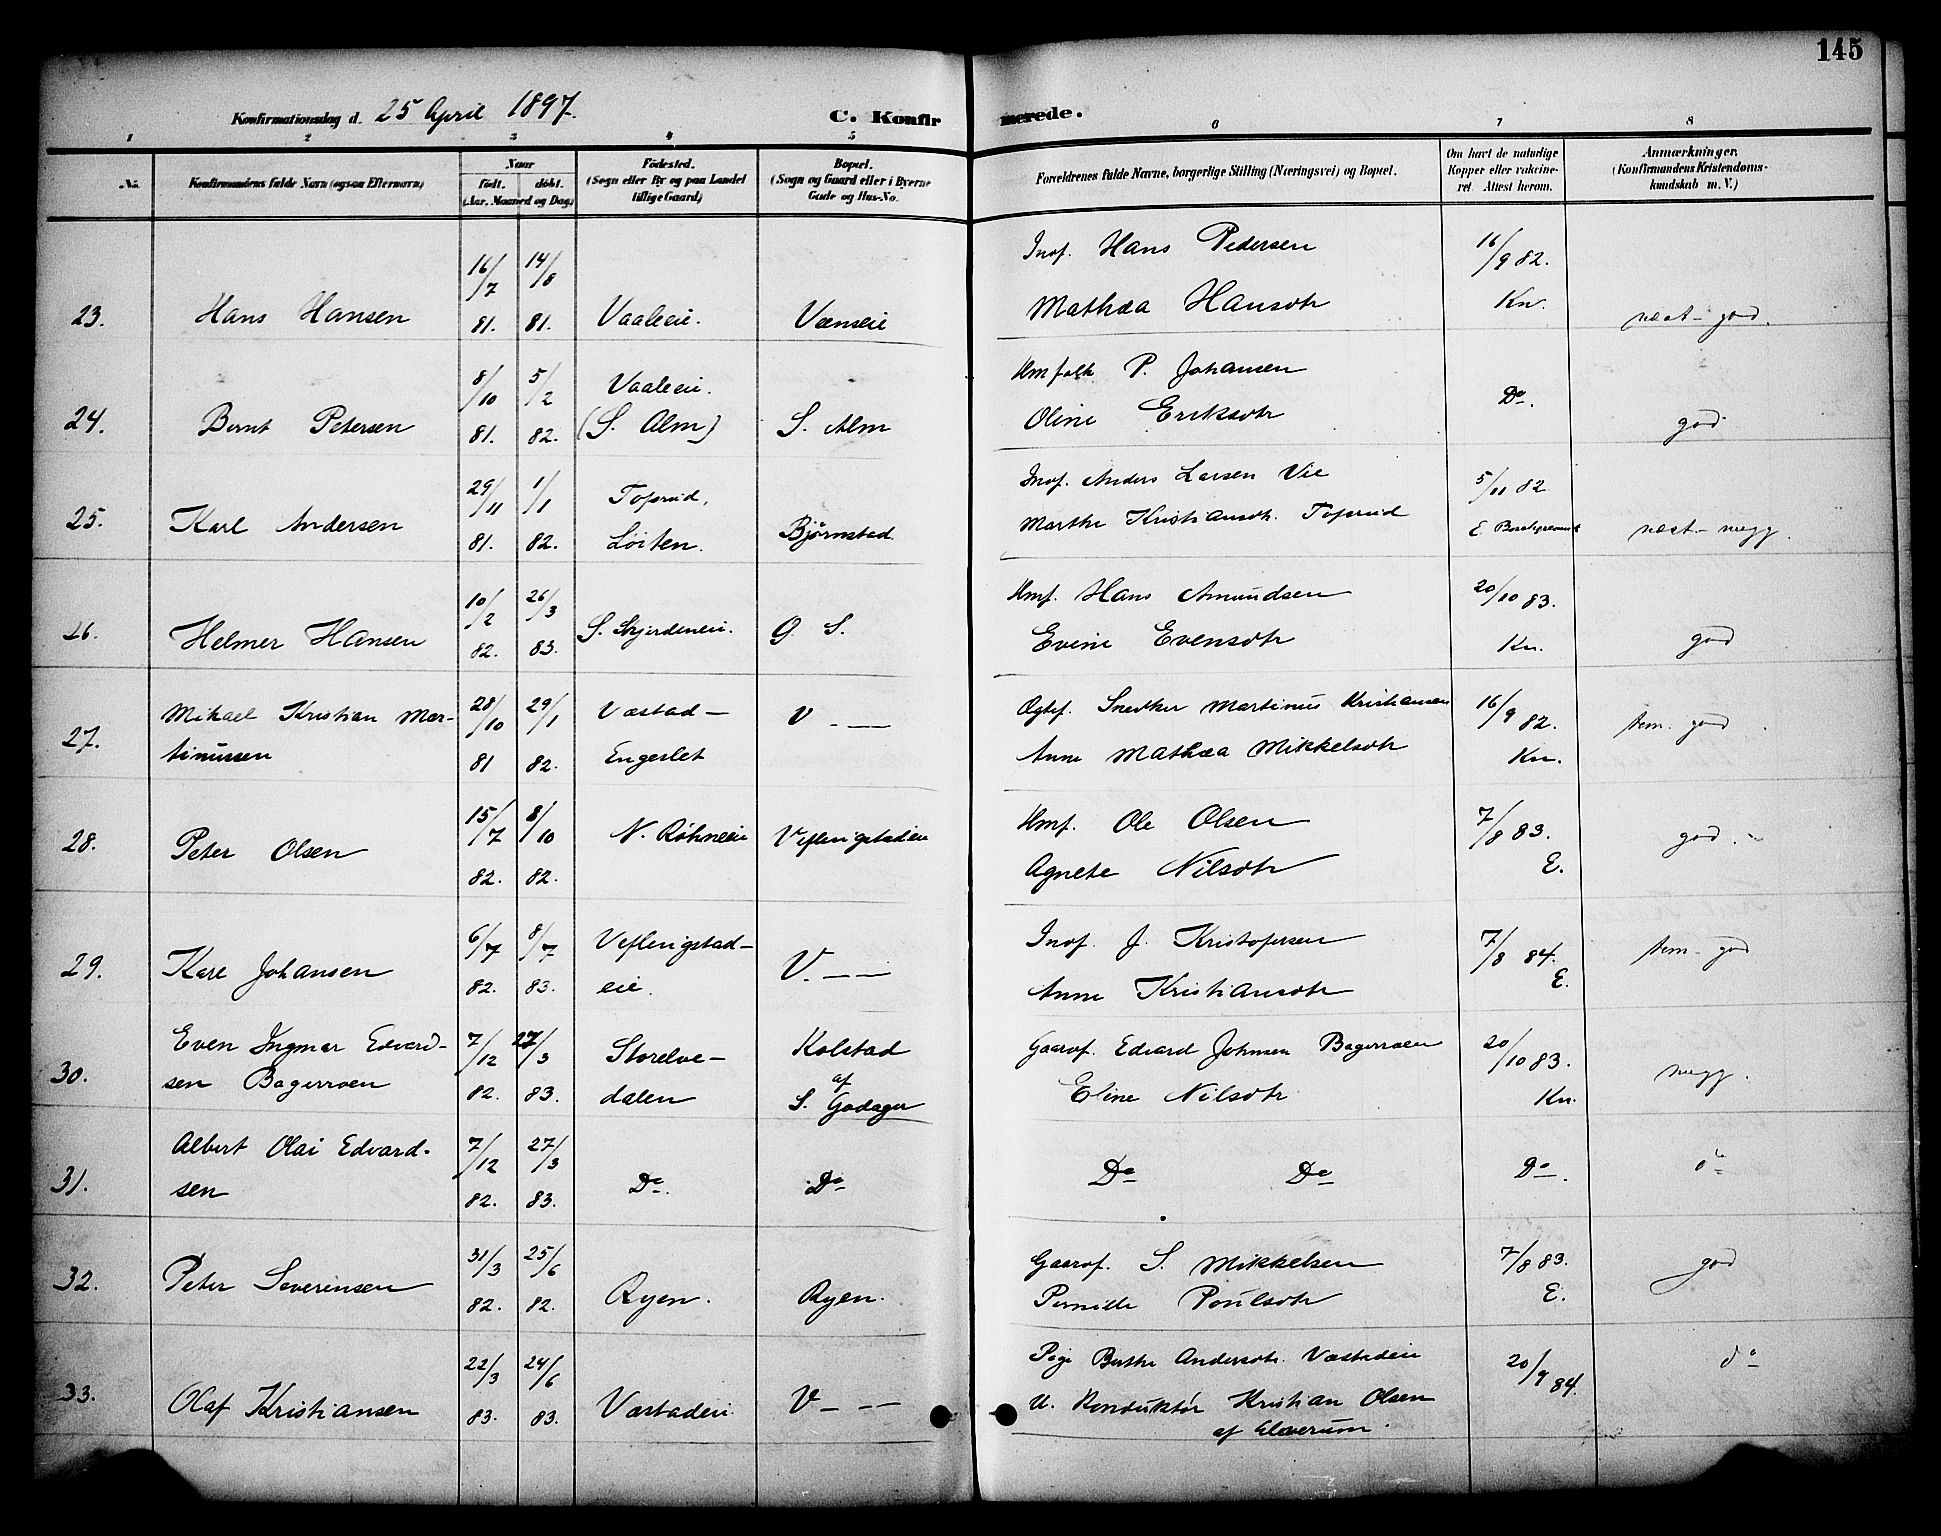 145
Konfirmationsdag d. 25 April 1897.
C. Konfirmerede.
1 2 3 4 5 6 7 8
No. Konfirmandens fulde Navn (ogsaa Efternavn)
Naar
født. døbt.
(Aar, Maaned og Dag)
Fødested.
(Sogn eller By og paa Landet
tillige Gaard)
Bopæl.
(Sogn og Gaard eller i Byerne
Gade og Hus-No.
Forældrenes fulde Navne, borgerlige Stilling (Næringsvei) og Bopæl.
Om havt de naturlige
Kopper eller vakcine-
ret Attest herom.
Anmærkninger.
(Konfirmandens Kristendoms-
kundskab m. V.)
16/7 14/8 Inds. Hans Pedersen 16/9 82.
23. Hans Hansen 81. 81. Vaaleeie. Vænseie Mathea Hansdtr Kn. næst-god.
8/10 5/2 Vaaleeie. Hmfolk P. Johansen Do.
24. Bernt Petersen 81. 82. (S. Alm) S. Alm Oline Eriksdtr god
29/11 1/1 Toprud, Inds. Anders Larsen Vie 5/11 82
25. Karl Andersen 81. 82. Løiten. Bjørnstad Marthe Kristiansdtr. Toprud næst-megg.
10/2 26/3 Hmf. Hans Amundsen 20/10 83.
26. Helmer Hansen 82. 83. S. Skjerdeneie. G. S. Evine Evensdtr Kn. god
Mikael Kristian Mar- 28/10 29/1 Væstad- V - - Ægtef. Snedker Martinus Kristiansen 16/9 82. tem. god
27. tinussen 81 82. Engeslet Anne Mathea Mikkelsdtr Kn.
15/7 8/10 Hmf. Ole Olsen 7/8 83.
28. Peter Olsen 82. 82. N. Røhneeie Veflingstadeie Agnete Nilsdtr E. god.
6/7 8/7 Veflingstad- Inds. J. Kristofersen 7/8 84. tem-god
29. Karl Johansen 82. 83. eie. V. - - Anne Kristiansdtr E.
Even Ingmar Edvard- 7/12 27/3 Storelve- Kolstad Gaardf. Edvard Johnsen Bagerroen 20/10 83.
30. sen Bagerroen 82. 83. dalen af S. Godager Eline Nilsdtr Kn. megg.
Albert Olai Edvard- 7/12 27/3
31. sen 82. 83. Do. Do Do Do Do. do
31/3 25/6 Gaardf. S. Mikkelsen 7/8 83. god
32. Peter Severinsen 82. 82. Ryen. Ryen. Pernille Poulsdtr E.
22/3 24/6 Pige Berthe Andersdtr. Væstadeie 20/9 84. do
33. Olaf Kristiansen 83. 83. Væstadeie V - - U. Konduktør Kristian Olsen
af Elverum.